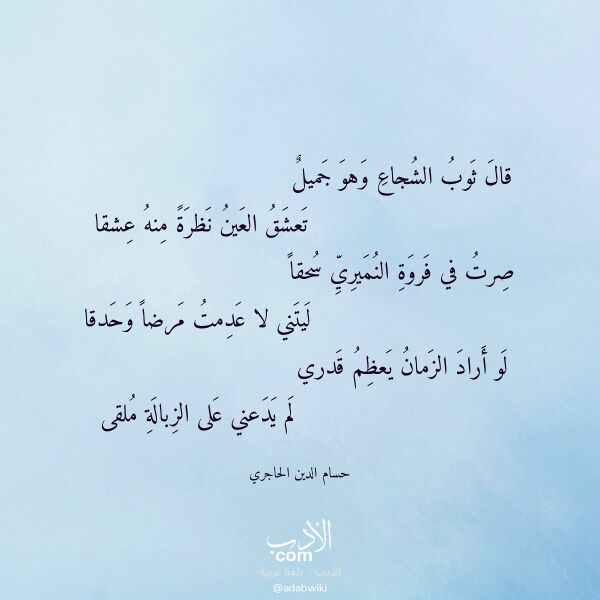 قالَ ثَوبُ الشُجاعِ وَهوَ جَميلٌ
تَعشَقُ العَينُ نَظرَةً مِنهُ عِشقا
صِرتُ في فَروَةِ النُمَيرِيِّ سُحقاً
لَيتَني لا عَدِمتُ مَرضاً وَحَدقا
لَو أَرادَ الزَمانُ يَعظِمُ قَدري
لَم يَدَعني عَلى الزِبالَةِ مُلقى
حسام الدين الحاجري
الأدب
com
الأدب .. بلغة عربية
@adabwiki